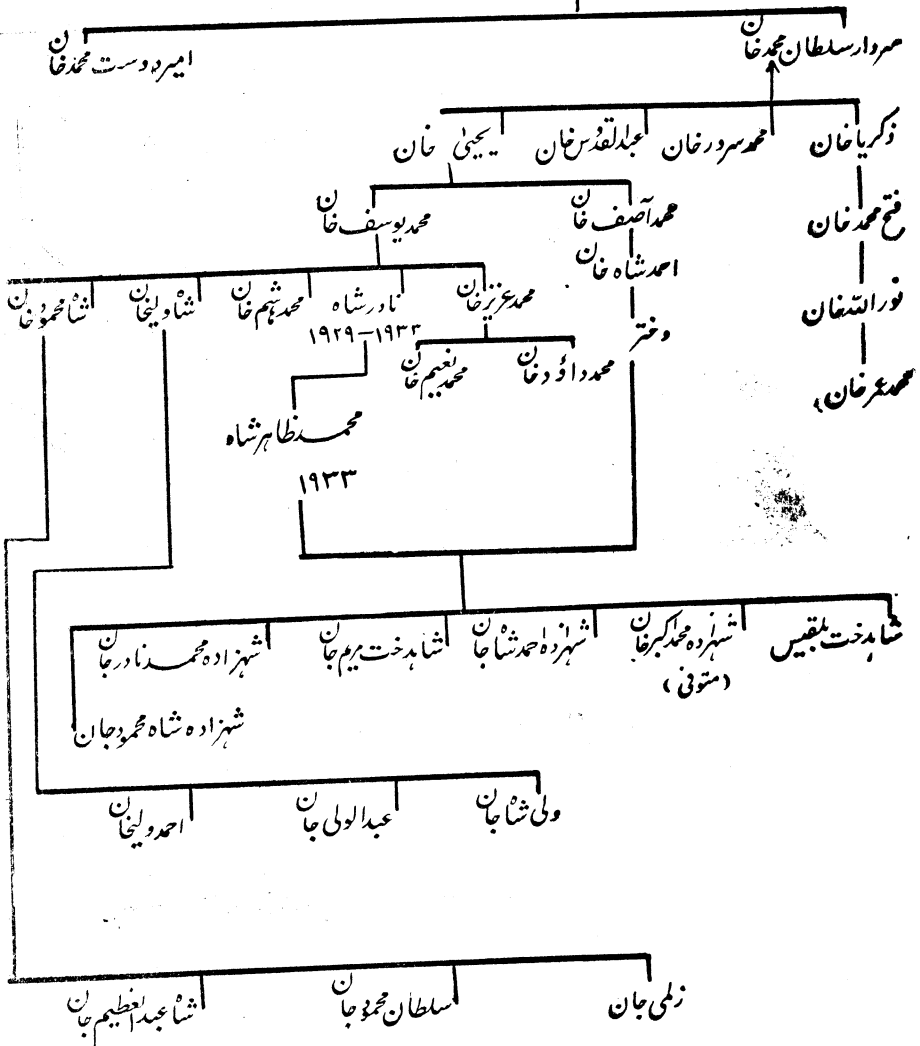 سردار سلطان محمد خان
امیر دوست محمد خان
ذکریا خان
محمد سرور خان
عبدالقدوس خان
یحییٰ خان
فتح محمد خان
محمد آصف خان
محمد یوسف خان
احمد شاہ خان
نور اللہ خان
محمد عزیز خان
نادر شاہ
محمد ہشم خان
شاہ ولیخان
شاہ محمود خان
۱۹۲۹–۱۹۳۳
دختر
محمد داؤد خان
محمد نعیم خان
محمد عمر خان
محمد ظاہر شاہ
۱۹۳۳
شاہدخت بلقیس
شہزادہ محمد اکبر خان
(متوفی)
شہزادہ احمد شاہ جان
شاہدخت مریم جان
شہزادہ محمد نادر جان
شہزادہ شاہ محمود جان
ولی شاہ جان
عبدالولی جان
احمد ولیخان
زلمی جان
سلطان محمود جان
شاہ عبدالعظیم جان